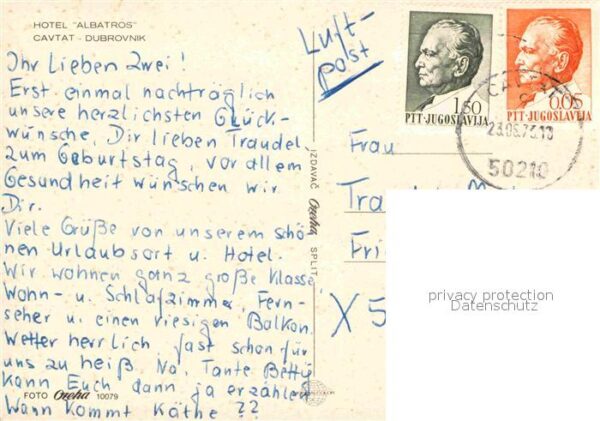 HOTEL "ALBATROS"
CAVTAT - DUBROVNIK
Ihr Lieben zwei!
Erst einmal nachträglich
unsere herzlichsten Glück-
wünsche, Dir lieben Traudel,
zum Geburtstag, vor allem
Gesundheit wünschen wir
Dir.
Viele Grüße von unserem schö-
nen Urlaubsort u. Hotel.
Wir wohnen ganz große Klasse
Wohn- u. Schlafzimmer, Fern-
seher u. einen riesigen Balkon.
Wetter herrlich fast schon für
uns zu heiß. Na, Tante Betty
kann Euch dann ja erzählen
Wann kommt Käthe ??
FOTO Ozeha 10079
IZDAVAČ Ozeha SPLIT
Luft-
post
1.50
PTT-JUGOSLAVIJA
0.05
PTT-JUGOSLAVIJA
50210
Frau
Tra
Fri
X 5
privacy protection
Datenschutz